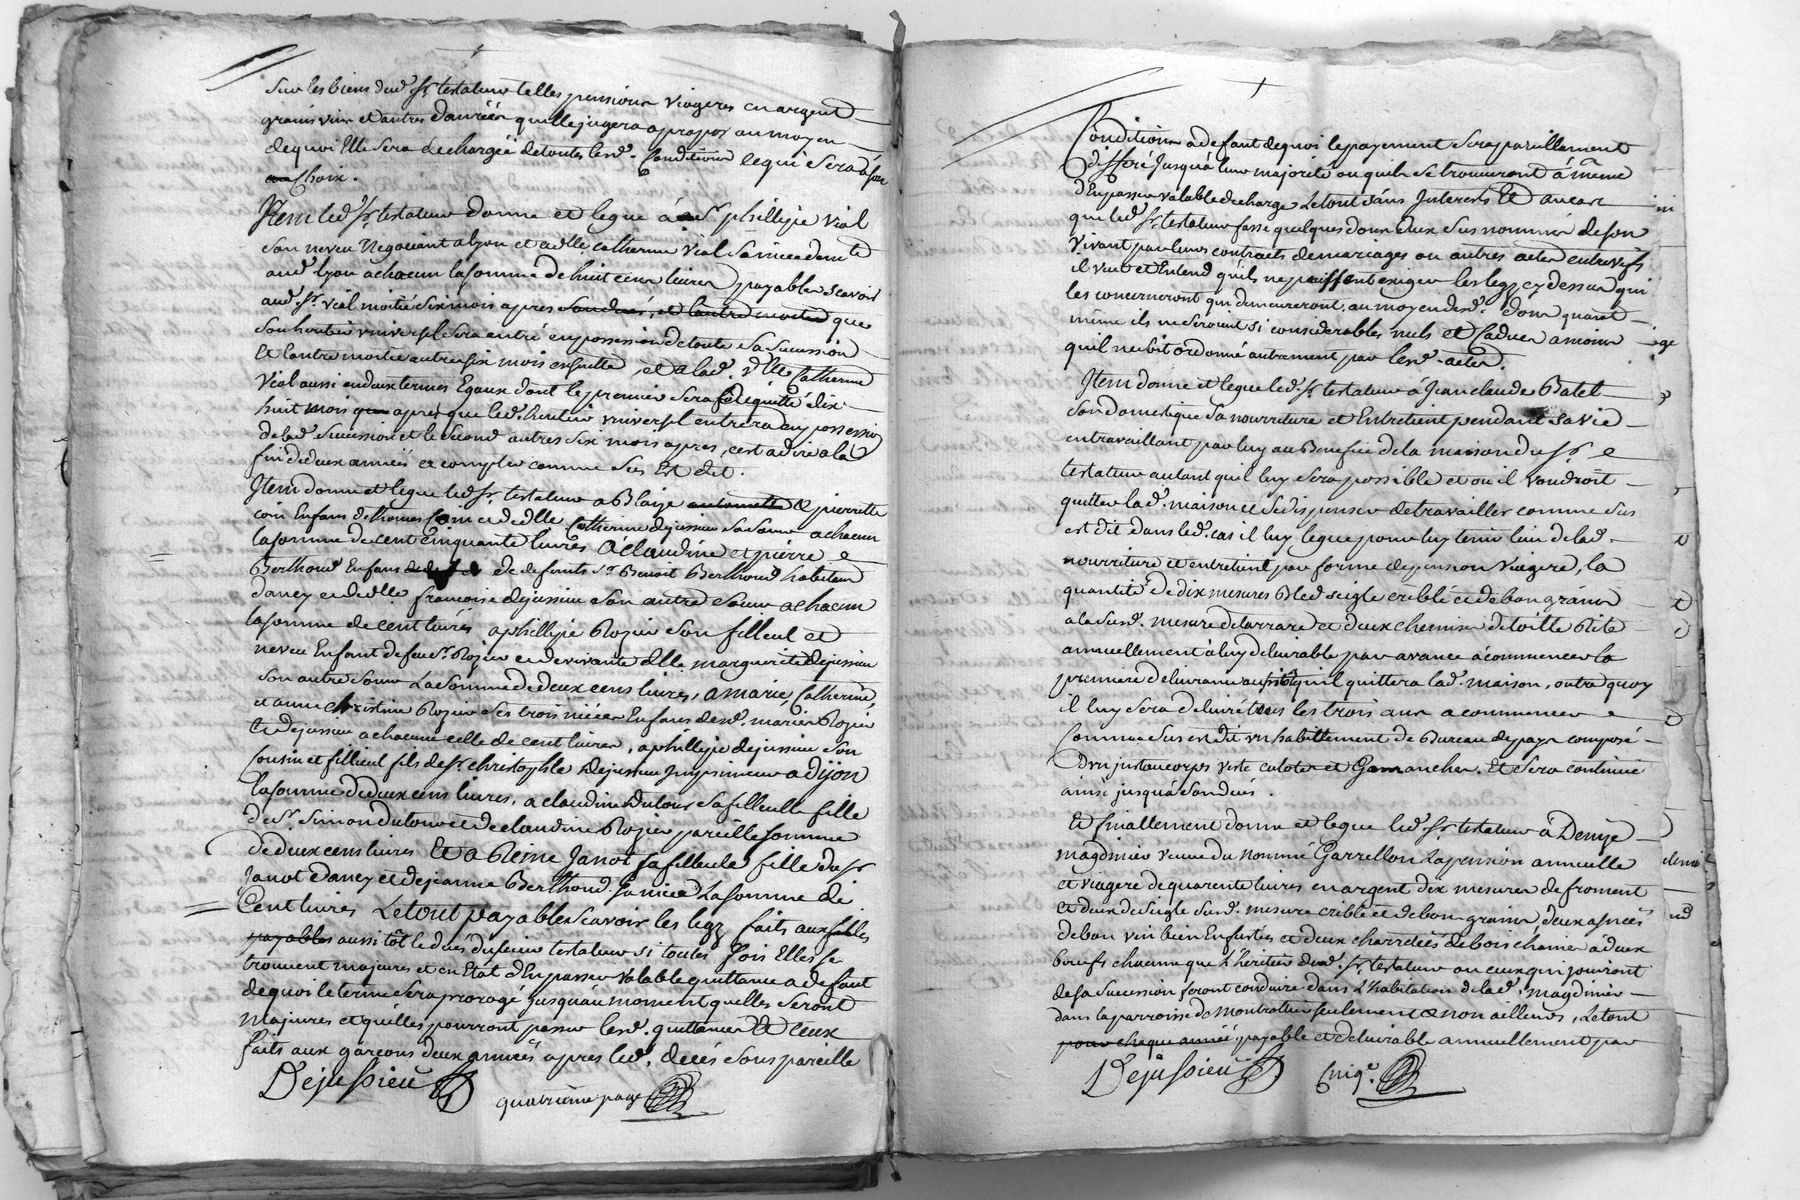 Sur les biens dud. Sr. testateur telles pensions viageres en argent
grains vins et autres danrées quelle jugera apropos au moyen
dequoi Elle sera dechargée detoutes lesd. Conditions ce qui sera à son
choix.
Item led. Sr. testateur donne et legue à sr. phillipe vial
son neveu Negociant a lyon et a dlle. catherine vial sa niece demte
aud. lyon a chacun la somme de huit cens livres payables scavoir
aud. Sr. vial moitié six mois apres son decés, et l'autre moitié que
son heritier universel sera entré en possession detoute sa succession
Et l'autre moitié autres six mois ensuitte, et a lad. dlle Catherine
vial aussi en deux termes Egaux dont le premier sera acquitté dix
huit mois apres que led. heritier universel entrera en possession
de lad. succession et le second autres six mois apres, cest adire a la
fin de deux années a compter comme sus Est dit.
Item donne et legue led. Sr. testateur a Blaise antoinette & pierrette
coin Enfans de thomas Coin et de dlle Catherine dejussieu sa soeur a chacun
la somme de cent cinquante livres A claudine et pierre
Berthoud Enfans de defunts sr. Benoit Berthoud habitant
dancy et de dlle francoise dejussieu son autre soeur a chacun
la somme de cent livres a phillipe Rozier son filleul et
neveu Enfant de feu sr. Rozier et de vivante dlle marguerite dejussieu
son autre soeur La somme de deux cens livres, a marie, Catherine,
et anne christine Rozier ses trois niéces Enfans desd. mariés Rozier
Et dejussieu a chacune celle de cent livres, a phillipe dejussieu son
Cousin et fillieul fils de Sr. christophle Dejussieu Imprimeur a Dijon
la somme de deux cens livres, a claudine Dutour sa filleule fille
de Sr. Simon dutour et de claudine Rozier pareille somme
de deux cens livres Et a Reine Janot sa filleule fille du Sr
Janot dancy et de jeanne Berthoud sa niéce La somme de
Cent livres Le tout payable Scavoir les legz faits aux filles
payables aussi tôt le decés dusieur testateur si toutes fois Elles se
trouvent majeures et en Etat d'En passer valable quittance a defaut
de quoi le terme sera prorogé jusqu'au moment quelles seront
Majeures et quelles pourront passer lesd. quittances Et ceux
faits aux garçons deux années apres led. decés sous pareille
Dejussieu
quatrieme page
Conditions a defaut de quoi le payement sera pareillement
differé Jusqu'a leur majorité ou quils se trouveront à même
d'En passer valable decharge Le tout sans Interests Et au cas
que led. Sr. testateur fasse quelques dons a Eux sus nommés de son
vivant par leurs contrats de mariages ou autres actes entrevifs
il veut et Entend qu'ils ne puissent exiger les legz cy dessus qui
les concerneront qui demeureront, au moyen desd. dons quand
même ils ne seroient si considerables nuls et Caducs a moins
quil ne soit ordonné autrement par lesd. actes.
Item donne et legue led. Sr. testateur à Jean claude Batet
son domestique sa nourriture et Entretient pendant sa vie
en travaillant par luy au Benefice de la maison du Sr.
testateur autant quil luy sera possible et ou il voudroit
quitter lad. maison et se dispenser de travailler comme sus
est dit dans led. cas il luy legue pour luy tenir lieu de lad.
nourriture et entretient par forme de pension viagere, la
quantité de dix mesures Bled seigle criblé et de bon grain
a la susd. mesure de tarrare et deux chemises de toille Rite
annuellement à luy delivrable par avance à commencer la
premiere delivrance aussitôt quil quittera lad. maison, outre quoy
il luy sera delivré tous les trois ans a commencer
Comme sus est dit un habillement de Bureau de pays composé
D'un justaucorps veste culotes et Gamanches. Et sera continué
ainsi jusquà son decés.
Et finallement donne et legue led. Sr. testateur à Denize
magdinier veuve du nommé Garrellon La pension annuelle
et viagere de quarente livres en argent dix mesures de froment
et deux de seigle susd. mesure criblé et de bon grain deux asnées
de bon vin bien Enfustées et deux charretées de bois chêne a deux
boeufs chacune que L'heritier dud. Sr. testateur ou ceux qui jouiront
de sa succession seront conduire dans L'habitation de lad. magdinier
dans la parroisse de montrottier seulement & non ailleurs, Le tout
pour chaque année payable et delivrable annuellement par
Dejussieu
Cinqe.